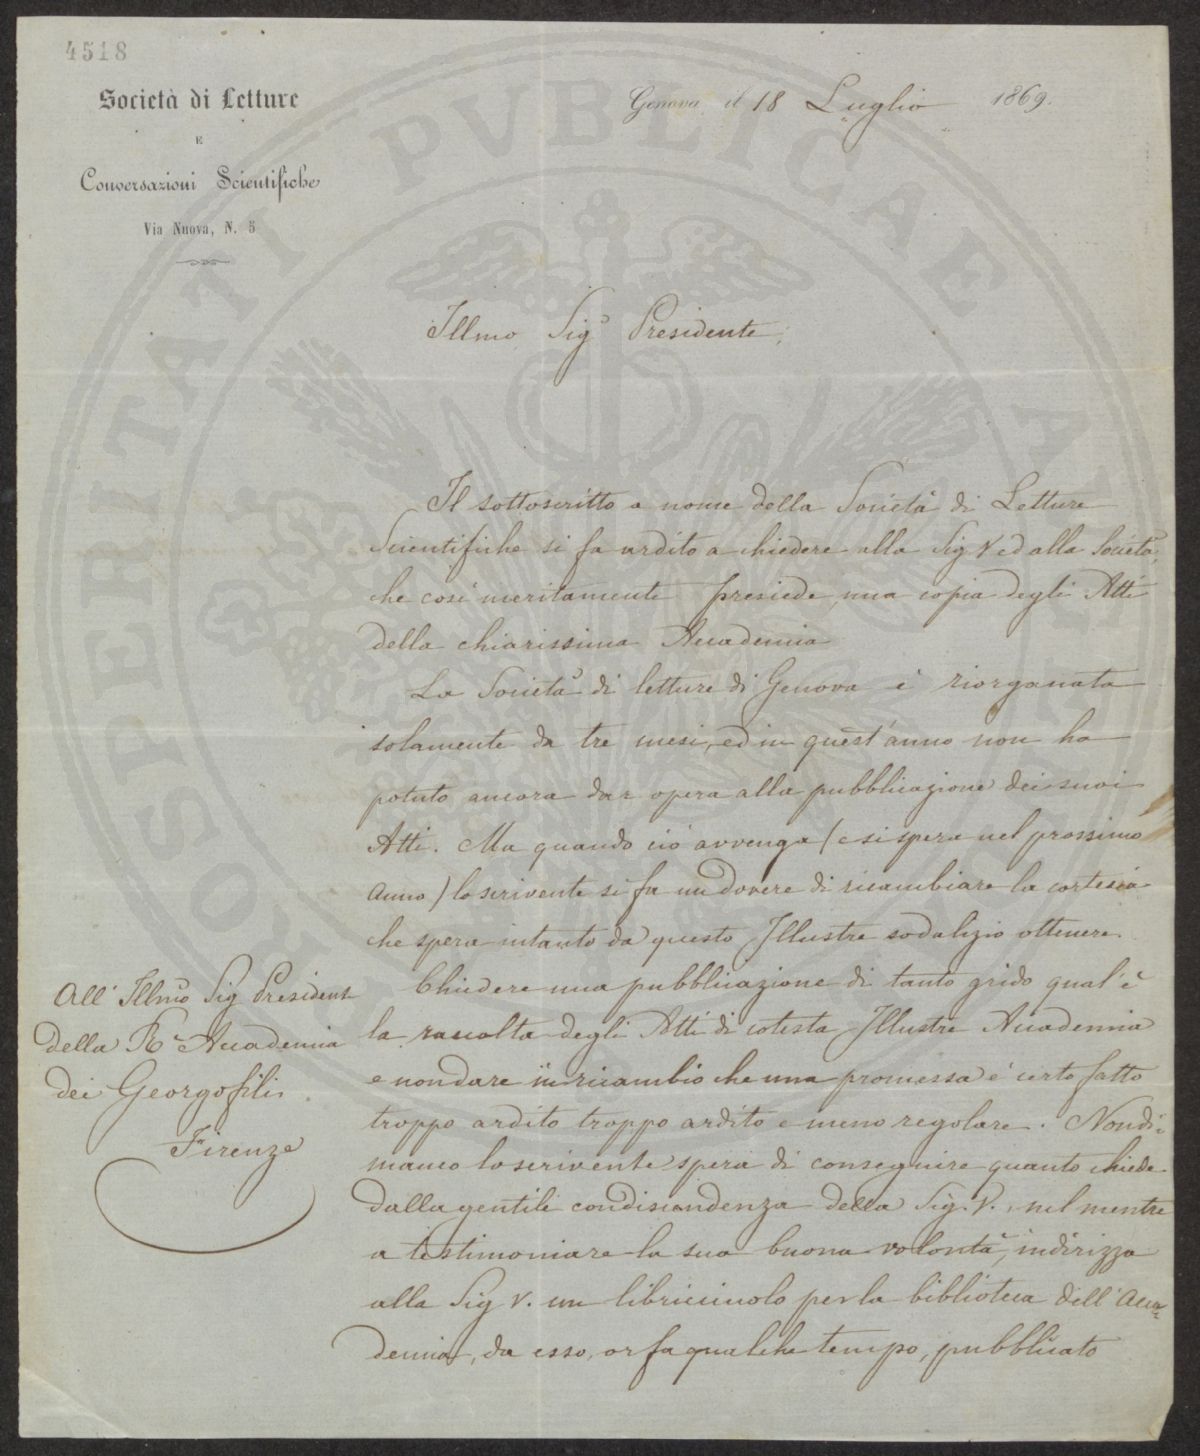 4518
Società di Letture
E
Conversazioni Scientifiche
Via Nuova, N. 5
Genova il 18 Luglio 1869.
Illmo Sigr Presidente,
Il sottoscritto a nome della Società di Letture
Scientifiche si fa ardito a chiedere alla Sig V ed alla Società,
che così meritamente presiede, una copia degli Atti
della chiarissima Accademia
La Società di letture di Genova è riorganata
solamente da tre mesi, ed in quest'anno non ha
potuto ancora dar opera alla pubblicazione dei suoi
Atti. Ma quando ciò avvenga (e si spera nel prossimo
anno) lo scrivente si fa un dovere di ricambiare la cortesia
che spera intanto da questo Illustre sodalizio ottenere.
Chiedere una pubblicazione di tanto grido qual'è
la raccolta degli Atti di cotesta Illustre Accademia
e non dare in ricambio che una promessa è certo fatto
troppo ardito troppo ardito e meno regolare. Nondi=
manco lo scrivente spera di conseguire quanto chiede
dalla gentile condiscendenza della Sig. V., nel mentre
a testimoniare la sua buona volontà, indirizza
alla Sig V. un libricciuolo per la biblioteca dell'Acca=
demia, da esso, or fa qualche tempo, pubblicato
All' Illmo Sig President
della Re Accademia
dei Georgofili.
Firenze
PROSPERITATI PVBLICAE AVGENDAE